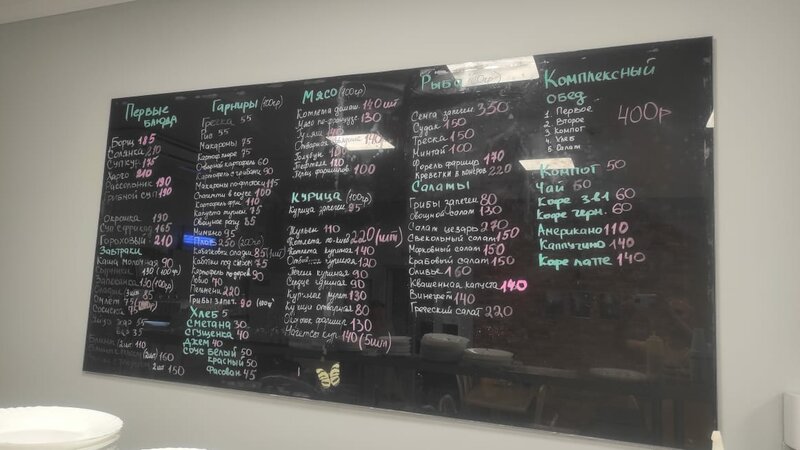 Первые блюда
Борщ 185
Солянка 210
Суп кур. 175
Харчо 210
Рассольник 190
Грибной суп 190
Окрошка 190
Суп с фрикад 165
Гороховый 210
Завтраки
Каша молочная 90
Сырники 130 (100гр)
Запеканка 130 (100гр)
Оладьи 85
Омлет 75
Сосиска 75
35
35
Блины (2шт.) 110
160
2шт 150
Гарниры (100гр)
Гречка 55
Рис 55
Макароны 75
Картоф. пюре 95
Отварной картофель 60
Картофель с грибами 90
Макароны по флотски 115
Спагетти в соусе 100
Картофель фри 110
Капуста тушен. 75
Овощное рагу 85
95
Плов 250 (200гр)
Кабачковые оладьи 85 (1шт)
75
90
40
Пельмени 220
Грибы запеч. 90 (100гр)
Хлеб 5
Сметана 30
Сгущенка 40
Джем 40
Соус белый 50
Красный 50
Фасован 45
Мясо (100гр)
Котлета домаш. 140 шт
Мясо по-француз. 130
Гуляш
Отварная 140
100
Тефтели
Перец фарширов. 100
Курица (100гр)
Курица запечен 95
Жульен 110
Котлета по-киевски 220 (шт)
Котлета куриная 140
120
Печень куриная 90
Сердце куриная 90
Куриный рулет 130
Курица отварная 80
Окорочок фаршир. 130
Наггетсы кур 140 (5шт)
Рыба (100гр)
Семга запечен 350
Судак 150
Треска 150
Минтай 100
Форель фаршир 170
Креветки в кляре 220
Салаты
Грибы запечен 80
Овощной салат 130
Салат цезарь 270
Свекольный салат 150
Морковный салат 150
Крабовый салат 150
Оливье 160
Квашенная капуста 140
Винегрет 140
Греческий салат 220
Комплексный обед
1. Первое
2. Второе
3. Компот
4. Хлеб
5. Салат
400р
Компот 50
Чай 50
Кофе 3в1 60
Кофе черн. 60
Американо 110
Каппучино 140
Кофе латте 140